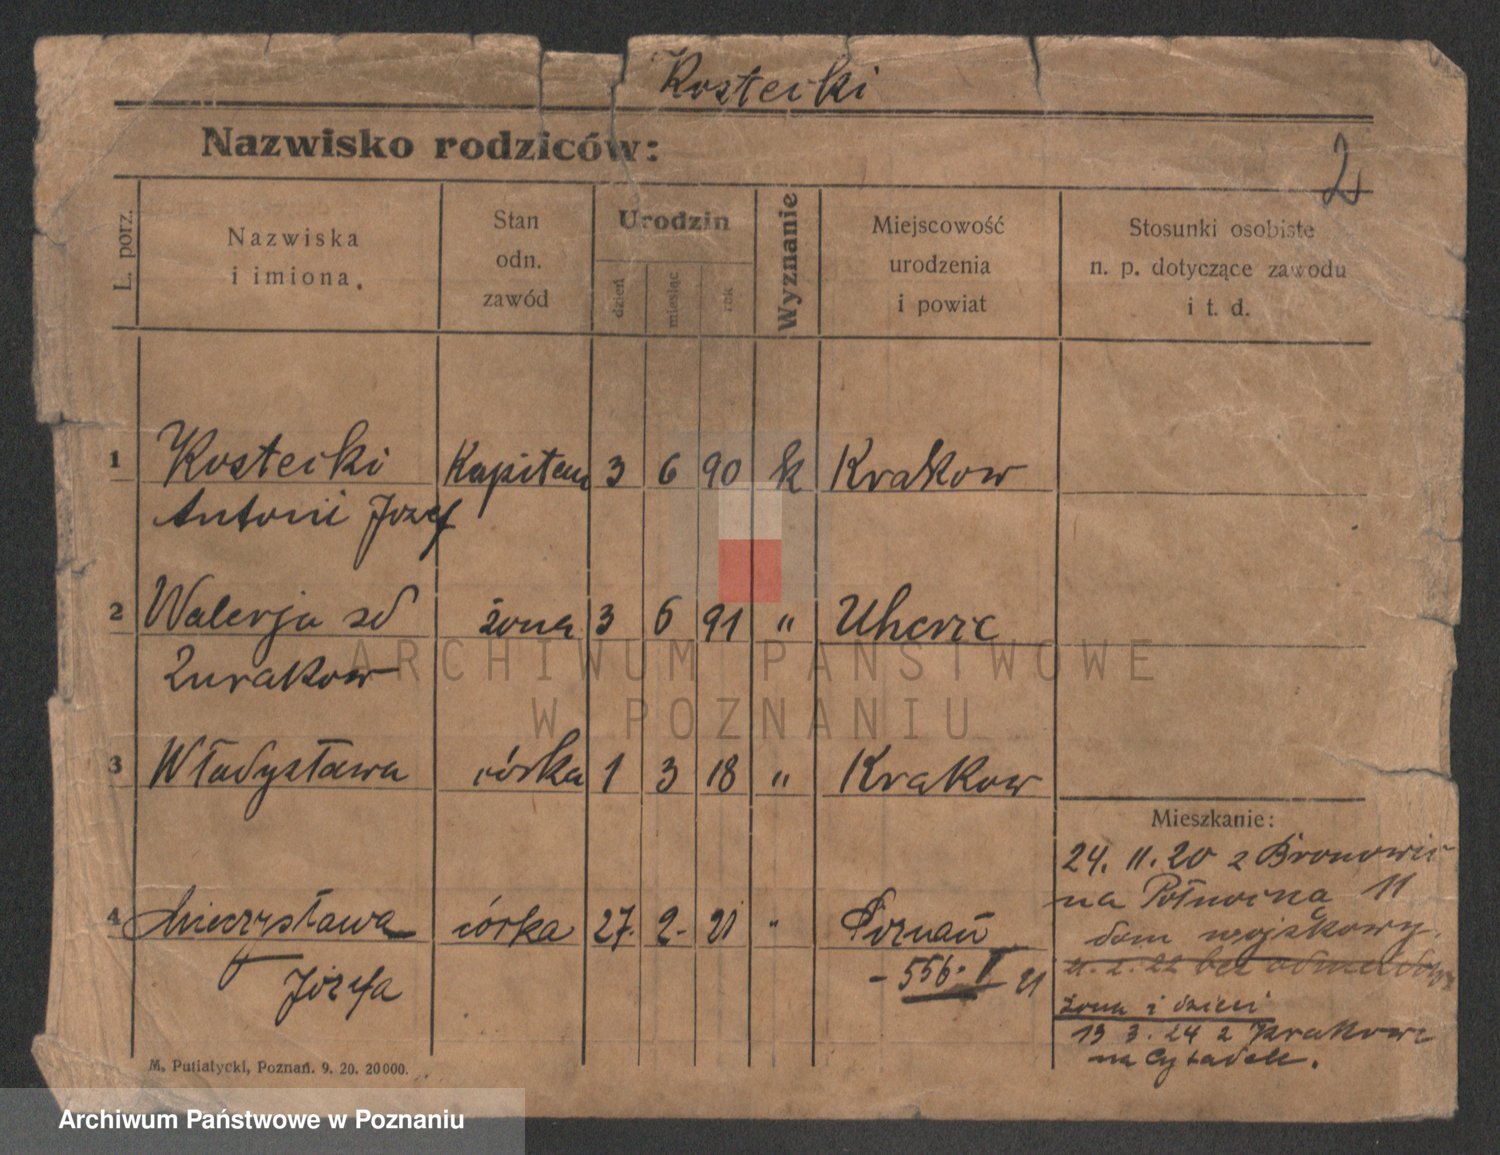 Kostecki
Nazwisko rodziców:
2
L. porz.
Nazwiska
i imiona.
Stan
odn.
zawód
Urodzin
dzień
miesiąc
rok
Wyznanie
Miejscowość
urodzenia
i powiat
Stosunki osobiste
n. p. dotyczące zawodu
i t. d.
1 Kostecki Kapitan 3 6 90 k Krakow
Antoni Jozef
2 Walerja zd żona 3 6 91 " Uherce
Zurakow
3 Władysława córka 1 3 18 " Krakow
4 Mieczysława córka 27. 2. 21 " Poznań
Józefa - 556. V 21
Mieszkanie:
24. 11. 20 z Bronowic
na Północna 11
dom wojskowy.
21. 2. 22 bez odmeldow
żona i dzieci
13 3. 24 z Krakowa
na Cytadele.
M. Putiatycki, Poznań. 9. 20. 20000.
ARCHIWUM PAŃSTWOWE
W POZNANIU
Archiwum Państwowe w Poznaniu